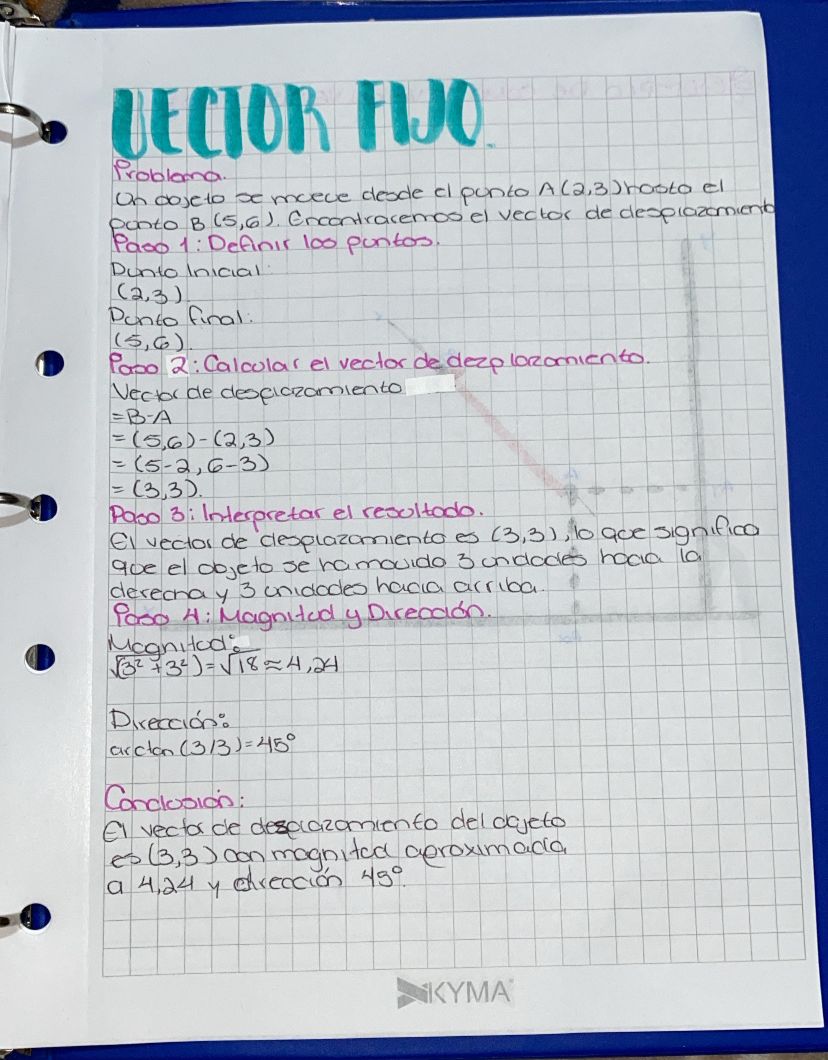 VECTOR FIJO.
Problema.
Un objeto se mueve desde el punto A(2,3) hasta el
punto B (5,6). Encontraremos el vector de desplazamiento
Paso 1: Definir los puntos.
Punto Inicial:
(2,3)
Punto final:
(5,6).
Paso 2: Calcular el vector de dezplazamiento.
Vector de desplazamiento
=B-A
=(5,6)-(2,3)
=(5-2, 6-3)
=(3,3).
Paso 3: Interpretar el resultado.
El vector de desplazamiento es (3,3), lo que significa
que el objeto se ha movido 3 unidades hacia la
derecha y 3 unidades hacia arriba.
Paso 4: Magnitud y Dirección.
Magnitud:
√(3²+3²)=√18≈4,24
Dirección:
arctan (3/3)=45°
Conclusión:
El vector de desplazamiento del objeto
es (3,3) con magnitud aproximada
a 4,24 y dirección 45°.
KYMA